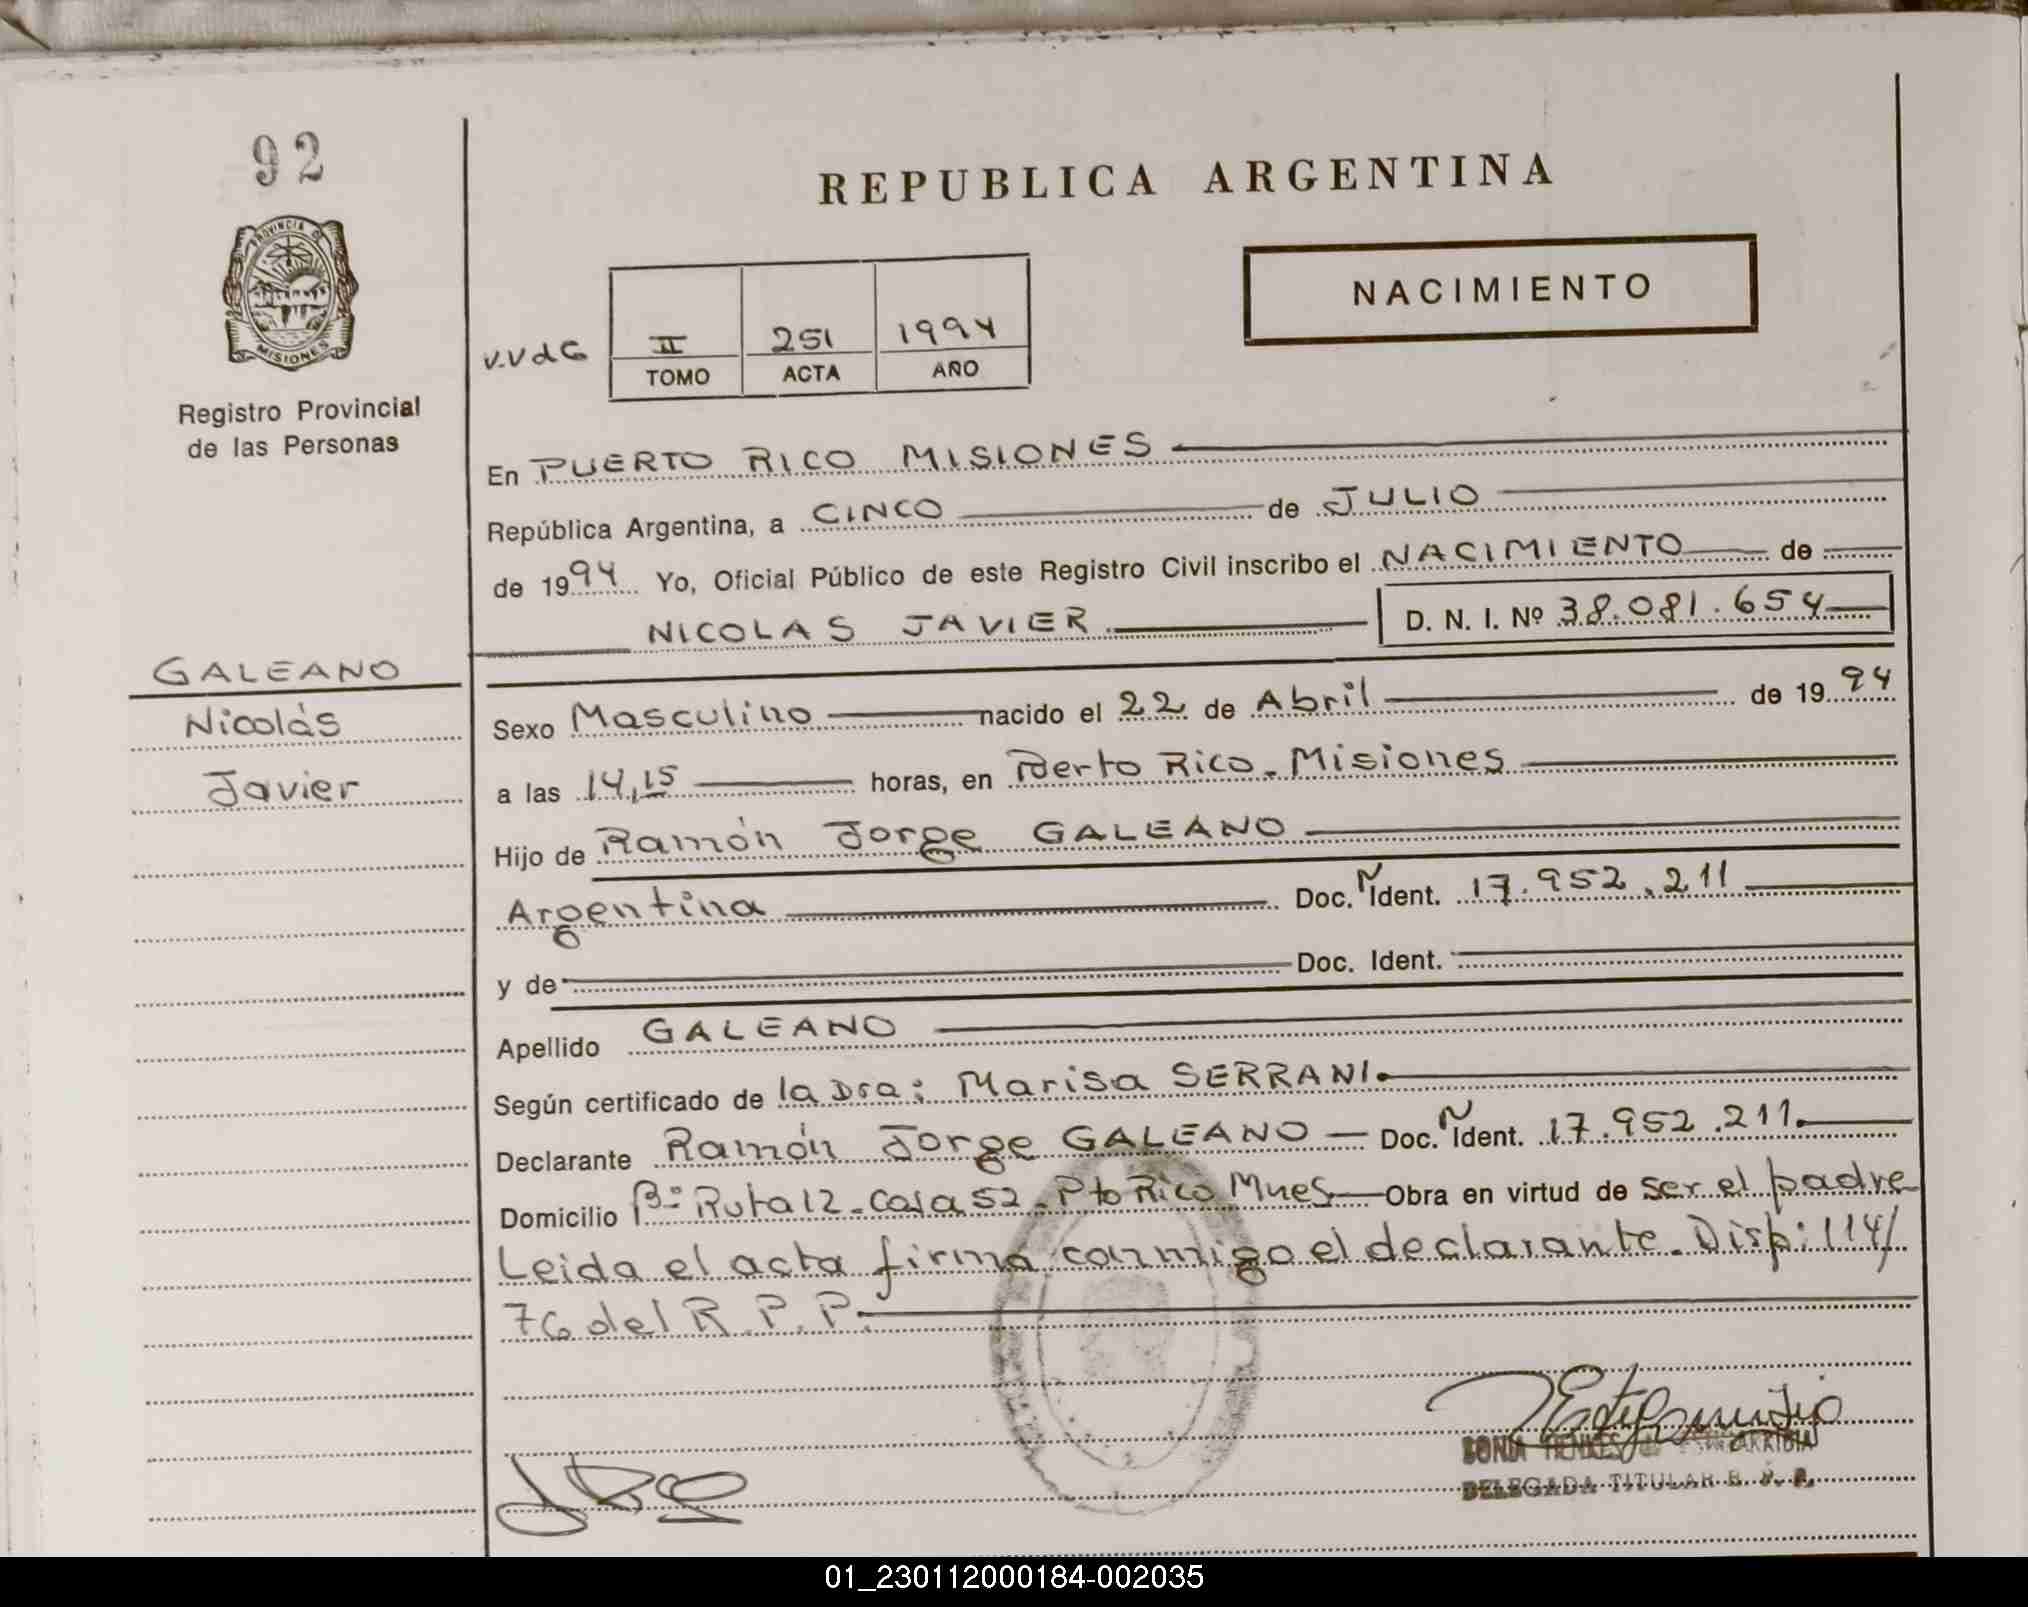 92
PROVINCIA DE
MISIONES
Registro Provincial
de las Personas
REPUBLICA ARGENTINA
NACIMIENTO
V.VdG
II 251 1994
TOMO ACTA AÑO
En PUERTO RICO MISIONES
República Argentina, a CINCO de JULIO
de 1994 Yo, Oficial Público de este Registro Civil inscribo el NACIMIENTO de
NICOLAS JAVIER D. N. I. Nº 38.081.654
GALEANO
Nicolás
Javier
Sexo Masculino nacido el 22 de Abril de 1994
a las 14,15 horas, en Pderto Rico - Misiones
Hijo de Ramón Jorge GALEANO
Argentina Doc. N Ident. 17.952.211
y de Doc. Ident.
Apellido GALEANO
Según certificado de la Dra: Marisa SERRANI.
Declarante Ramón Jorge GALEANO Doc. N Ident. 17.952.211.
Domicilio Bº Ruta 12 - Casa 52 - Pto Rico Mnes Obra en virtud de ser el padre
Leida el acta firma conmigo el declarante. Disp: 114/
76 del R.P.P.
SONIA
DELEGADA TITULAR R. P. P.
01_230112000184-002035